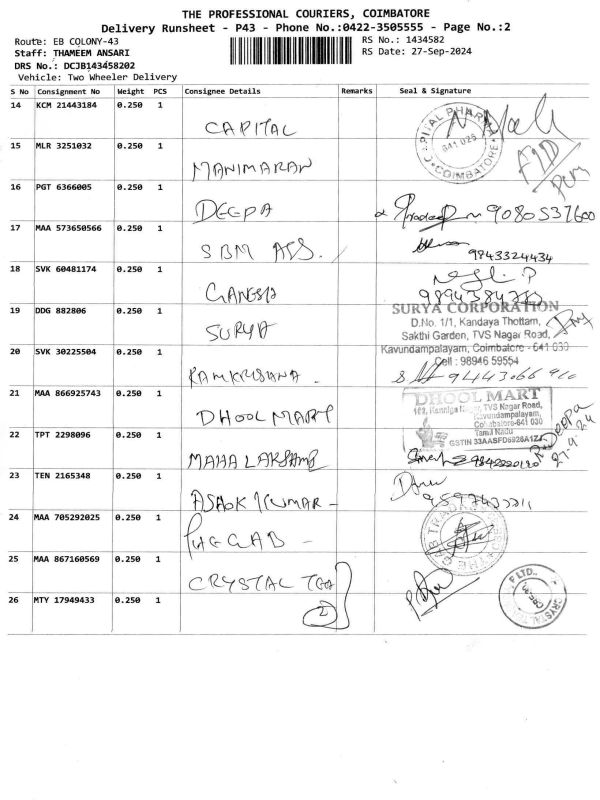 THE PROFESSIONAL COURIERS, COIMBATORE
Delivery Runsheet - P43 - Phone No.:0422-3505555 - Page No.:2
Route: EB COLONY-43
Staff: THAMEEM ANSARI
DRS No.: DCJB143458202
Vehicle: Two Wheeler Delivery
RS No.: 1434582
RS Date: 27-Sep-2024
S No Consignment No Weight PCS Consignee Details Remarks Seal & Signature
14 KCM 21443184 0.250 1 CAPITAL
CAPITAL PHARMA
641 025
COIMBATORE
15 MLR 3251032 0.250 1 MANIMARAN
16 PGT 6366005 0.250 1 DEEPA Pradeep 9080537600
17 MAA 573650566 0.250 1 SBM ASS. 9843324434
18 SVK 60481174 0.250 1 GANESH
19 DDG 882806 0.250 1 SURYA
SURYA CORPORATION
D.No. 1/1, Kandaya Thottam,
Sakthi Garden, TVS Nagar Road,
Kavundampalayam, Coimbatore - 641 030
Cell : 98946 59554
20 SVK 30225504 0.250 1 RAMKRISHNA
21 MAA 866925743 0.250 1 DHOOL MART
DHOOL MART
TVS Nagar Road,
Kavundampalayam,
Coimbatore-641 030
Tamil Nadu
GSTIN 33AASFD5926A1Z
Deepa
27.9.24
22 TPT 2298096 0.250 1 MAHALAKSHMI
23 TEN 2165348 0.250 1 ASHOK KUMAR -
24 MAA 705292025 0.250 1
25 MAA 867160569 0.250 1 CRYSTAL TEA
26 MTY 17949433 0.250 1 2